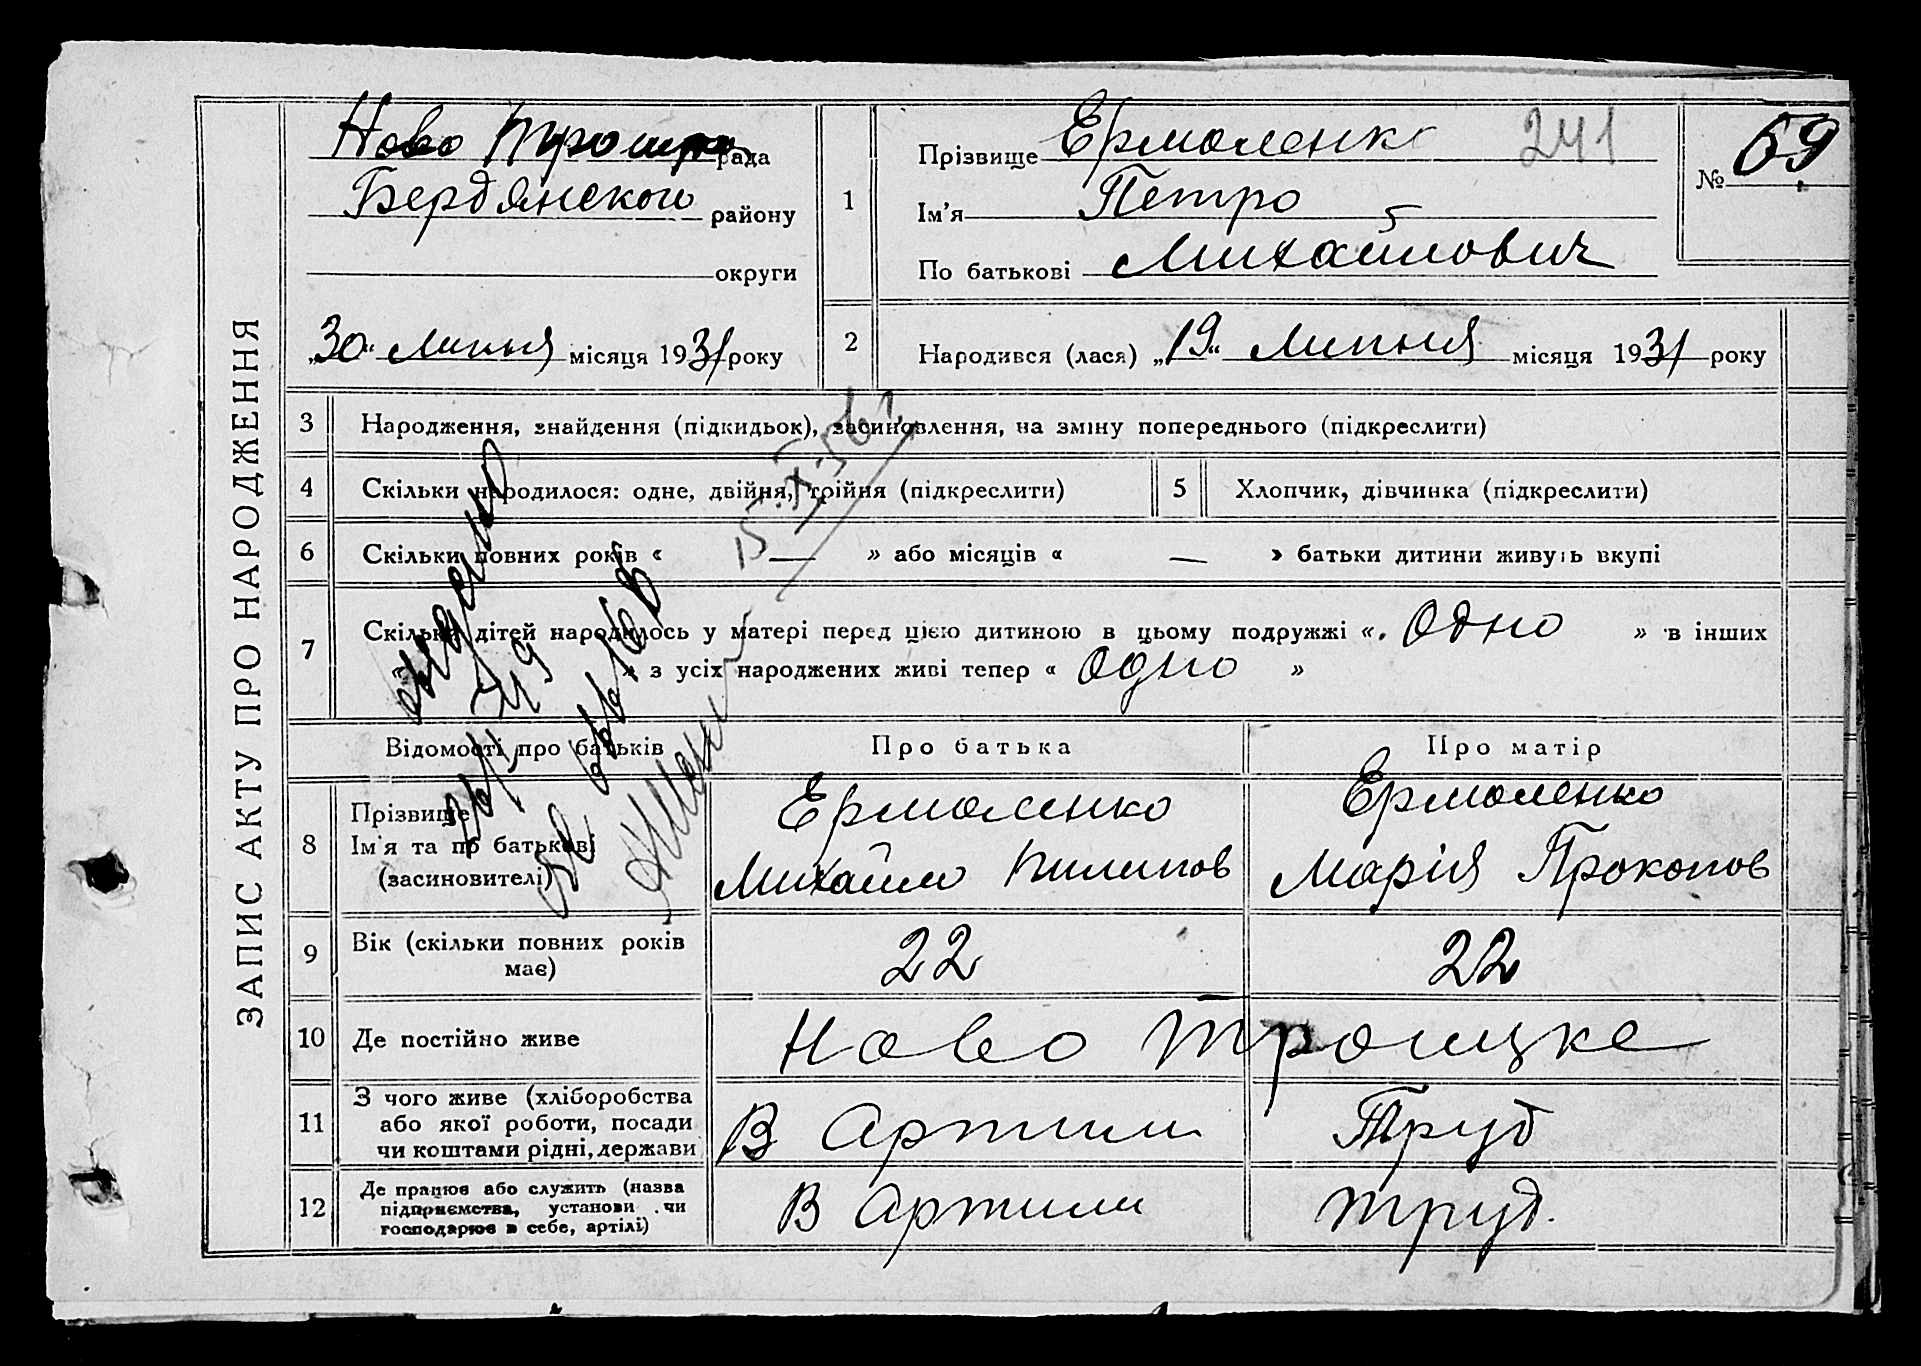 ЗАПИС АКТУ ПРО НАРОДЖЕННЯ
Ново Троицка рада
Бердянского району
округи
„30“ Липня місяця 1931 року
1
Прізвище Ермоленко 241
Ім'я Петро
По батькові Михайлович
№ 69
2
Народився (лася) „19“ Липня місяця 1931 року
3 Народження, знайдення (підкидьок), засиновлення, на зміну попереднього (підкреслити)
4 Скільки народилося: одне, двійня, трійня (підкреслити)
5 Хлопчик, дівчинка (підкреслити)
6 Скільки повних років « — » або місяців « — » батьки дитини живуть вкупі
15.X.56г
7 Скільки дітей народилось у матері перед цією дитиною в цьому подружжі «. Одно » в інших
» з усіх народжених живі тепер « одно »
Відомості про батьків Про батька Про матір
8 Прізвище
Ім'я та по батькові
(засиновителі)
Ермоленко
Михайло Пилипов
Ермоленко
Марія Прокопов
9 Вік (скільки повних років
має)
22 22
10 Де постійно живе Ново Троицке
11 З чого живе (хліборобства
або якої роботи, посади
чи коштами рідні, держави
В Артили Труд
12 Де працює або служить (назва
підприємства, установи чи
господарює в себе, артілі)
В Артили Труд.